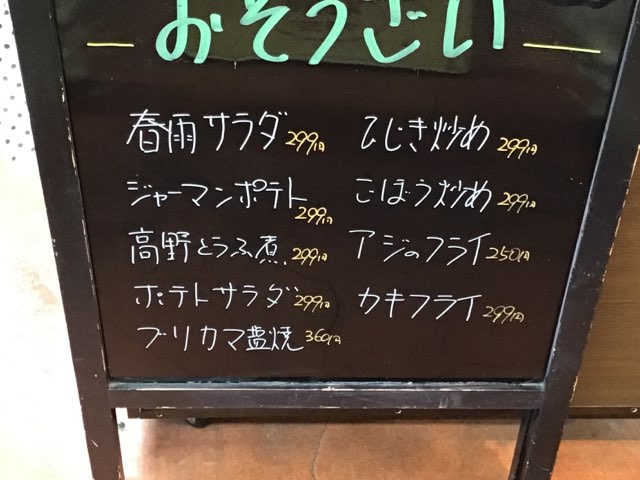 おそうざい
春雨サラダ 299円
ジャーマンポテト 299円
高野とうふ煮 299円
ポテトサラダ 299円
ブリカマ塩焼 360円
ひじき炒め 299円
ごぼう炒め 299円
アジのフライ 250円
カキフライ 299円